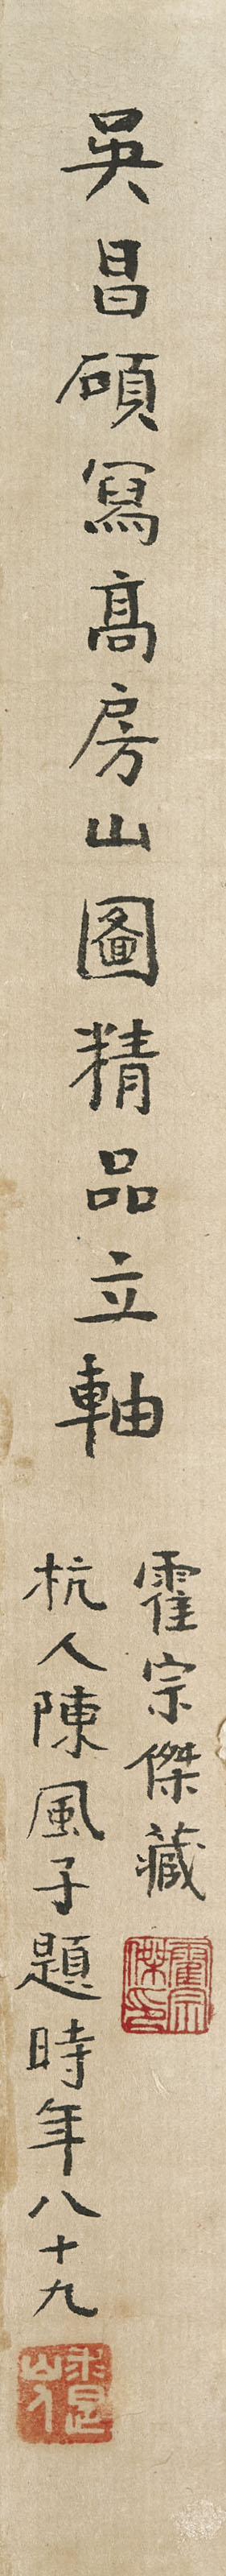 吳昌碩寫高房山圖精品立軸
霍宗傑藏
霍宗傑印
杭人陳風子題時年八十九